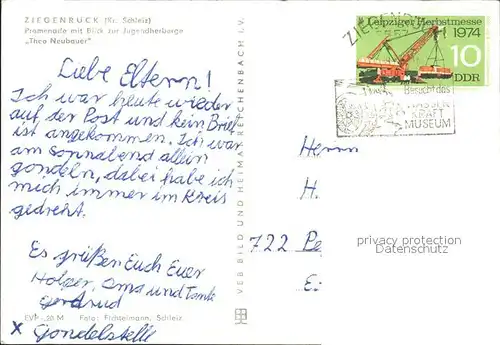 ZIEGENRÜCK (Kr. Schleiz)
Promenade mit Blick zur Jugendherberge
„Theo Neubauer"
Liebe Eltern!
Ich war heute wieder
auf der Post und kein Brief
ist angekommen. Ich war
am sonnabend allein
gondeln, dabei habe ich
mich immer im Kreis
gedreht.
Es grüßen Euch Euer
Holger, Oma und Tante
Gertrud
EVP -,20 M Foto: Fichtelmann, Schleiz
X Gondelstelle
VEB BILD UND HEIMAT REICHENBACH I.V.
ZIEGENRÜCK
Leipziger Herbstmesse
1974
10
DDR
Besucht das
WASSER
KRAFT
MUSEUM
Herrn
H.
722 Pe
privacy protection
Datenschutz